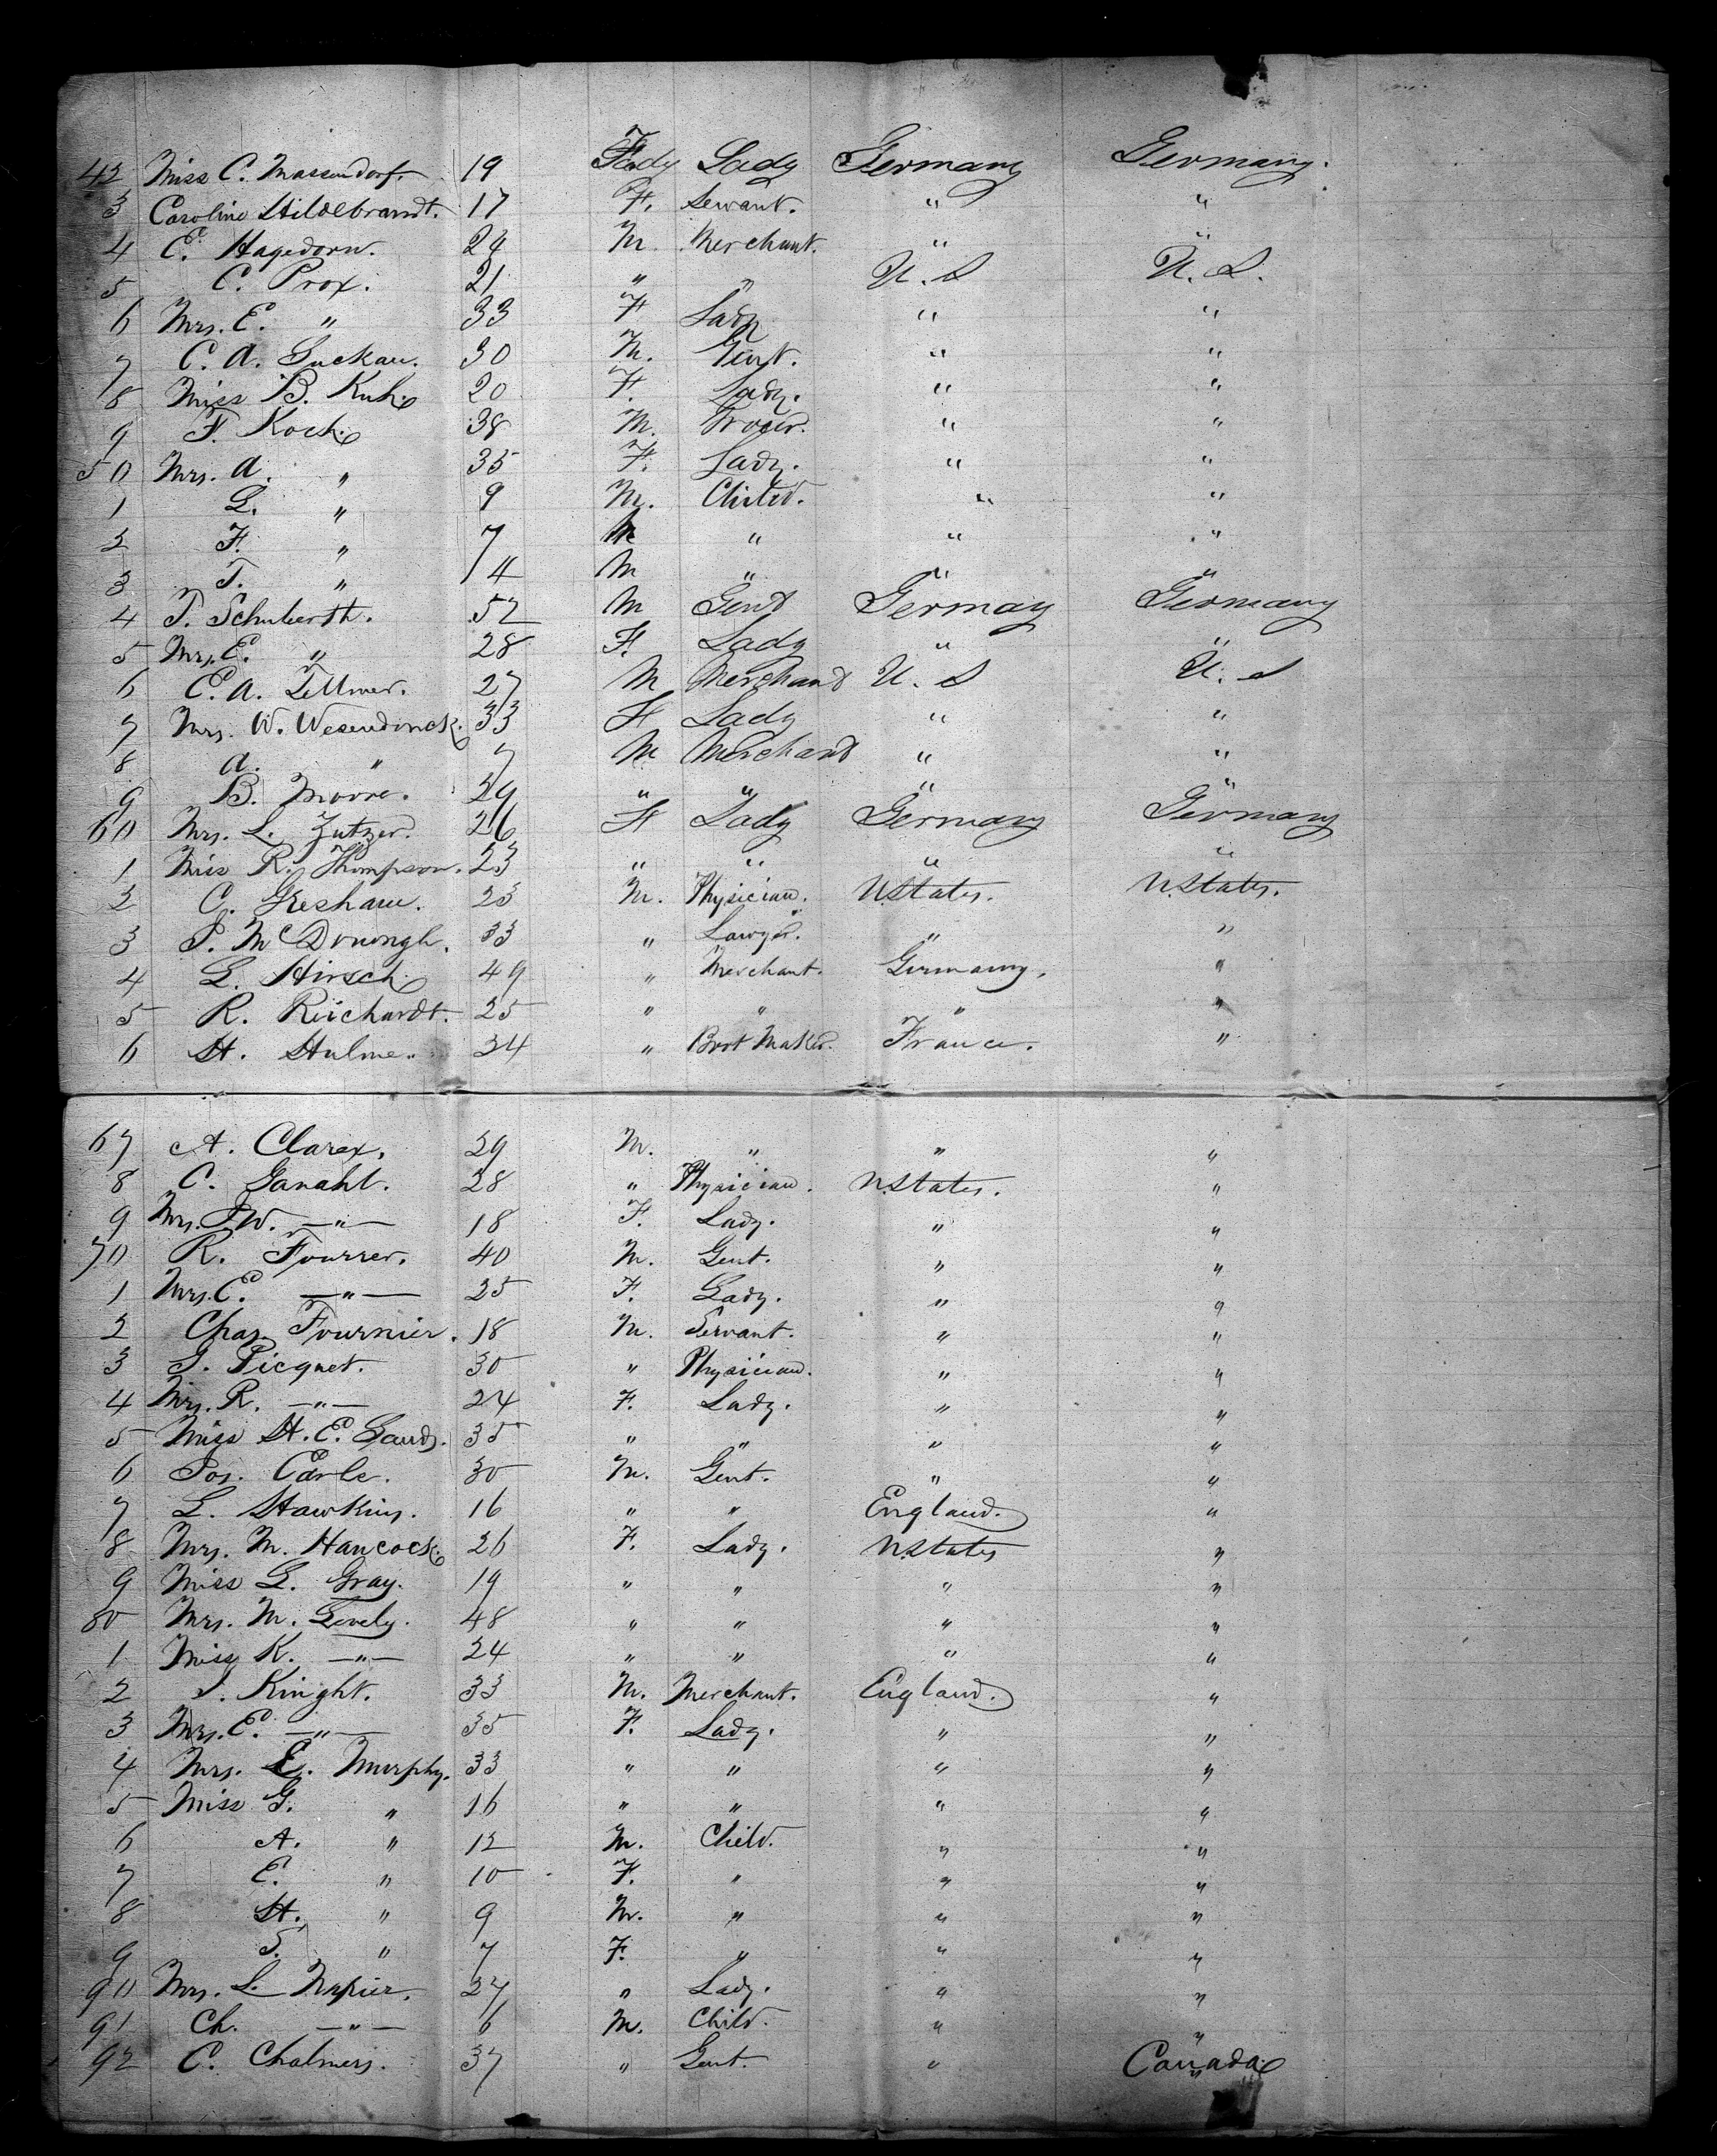 42 Miss C. Massendorf. 19 Lady Lady Germany Germany.
3 Caroline Hildebrandt. 17 F. Servant. " "
4 E. Hagedorn. 24 M. Merchant. " "
5 C. Prox. 21 " " U. S U. S.
6 Mrs. E. " 33 F Lady " "
7 C. A. Luckau. 30 M. Gent. " "
8 Miss B. Kuh. 20 F. Lady. " "
9 F. Koch. 38 M. Grocer. " "
50 Mrs. A. " 35 F. Lady. " "
1 L. " 9 M. Child. " "
2 F. " 7 M " " "
3 T. " 4 M " " "
4 T. Schuberth. 52 M Gent Germay Germany
5 Mrs. E. " 28 F. Lady " "
6 E. A. Tellmer. 27 M Merchand U. S U. S
7 Mrs. W. Wesendonck. 33 F Lady " "
8 A. " 7 M Merchand " "
9 B. Moore. 29 " " " "
60 Mrs. L. Zutzer. 26 F Lady Germany Germany
1 Miss R. Thompson. 23 " " " "
2 C. Gresham. 23 M. Physician. U.States. U.States.
3 P. McDonough. 33 " Lawyer. " "
4 L. Hirsch. 49 " Merchant. Germany. "
5 R. Reichardt. 25 " " " "
6 H. Hulme. 34 " Boot Maker. France. "
67 A. Clarex. 29 M. " " "
8 C. Ganahl. 28 " Physician. U.States. "
9 Mrs. P.W. —"— 18 F. Lady. " "
70 R. Fourrer. 40 M. Gent. " "
1 Mrs. E. —"— 25 F. Lady. " "
2 Chas. Fournier. 18 M. Servant. " "
3 J. Picquet. 30 " Physician. " "
4 Mrs. R. —"— 24 F. Lady. " "
5 Miss H. E. Sands. 35 " " " "
6 Jos. Earle. 30 M. Gent. " "
7 L. Hawkins. 16 " " England. "
8 Mrs. M. Hancock. 26 F. Lady. U.States "
9 Miss L. Gray. 19 " " " "
80 Mrs. M. Lovely. 48 " " " "
1 Miss K. —"— 24 " " " "
2 J. Kinght. 33 M. Merchant. England. "
3 Mrs. E. —"— 35 F. Lady. " "
4 Mrs. E. Murphy. 33 " " " "
5 Miss G. " 16 " " " "
6 A. " 12 M. Child. " "
7 E. " 10 F. " " "
8 H. " 9 M. " " "
9 S. " 7 F. " " "
90 Mrs. L. Napier. 27 " Lady. " "
91 Ch. —"— 6 M. Child. " "
92 C. Chalmers. 37 " Gent. " Canada